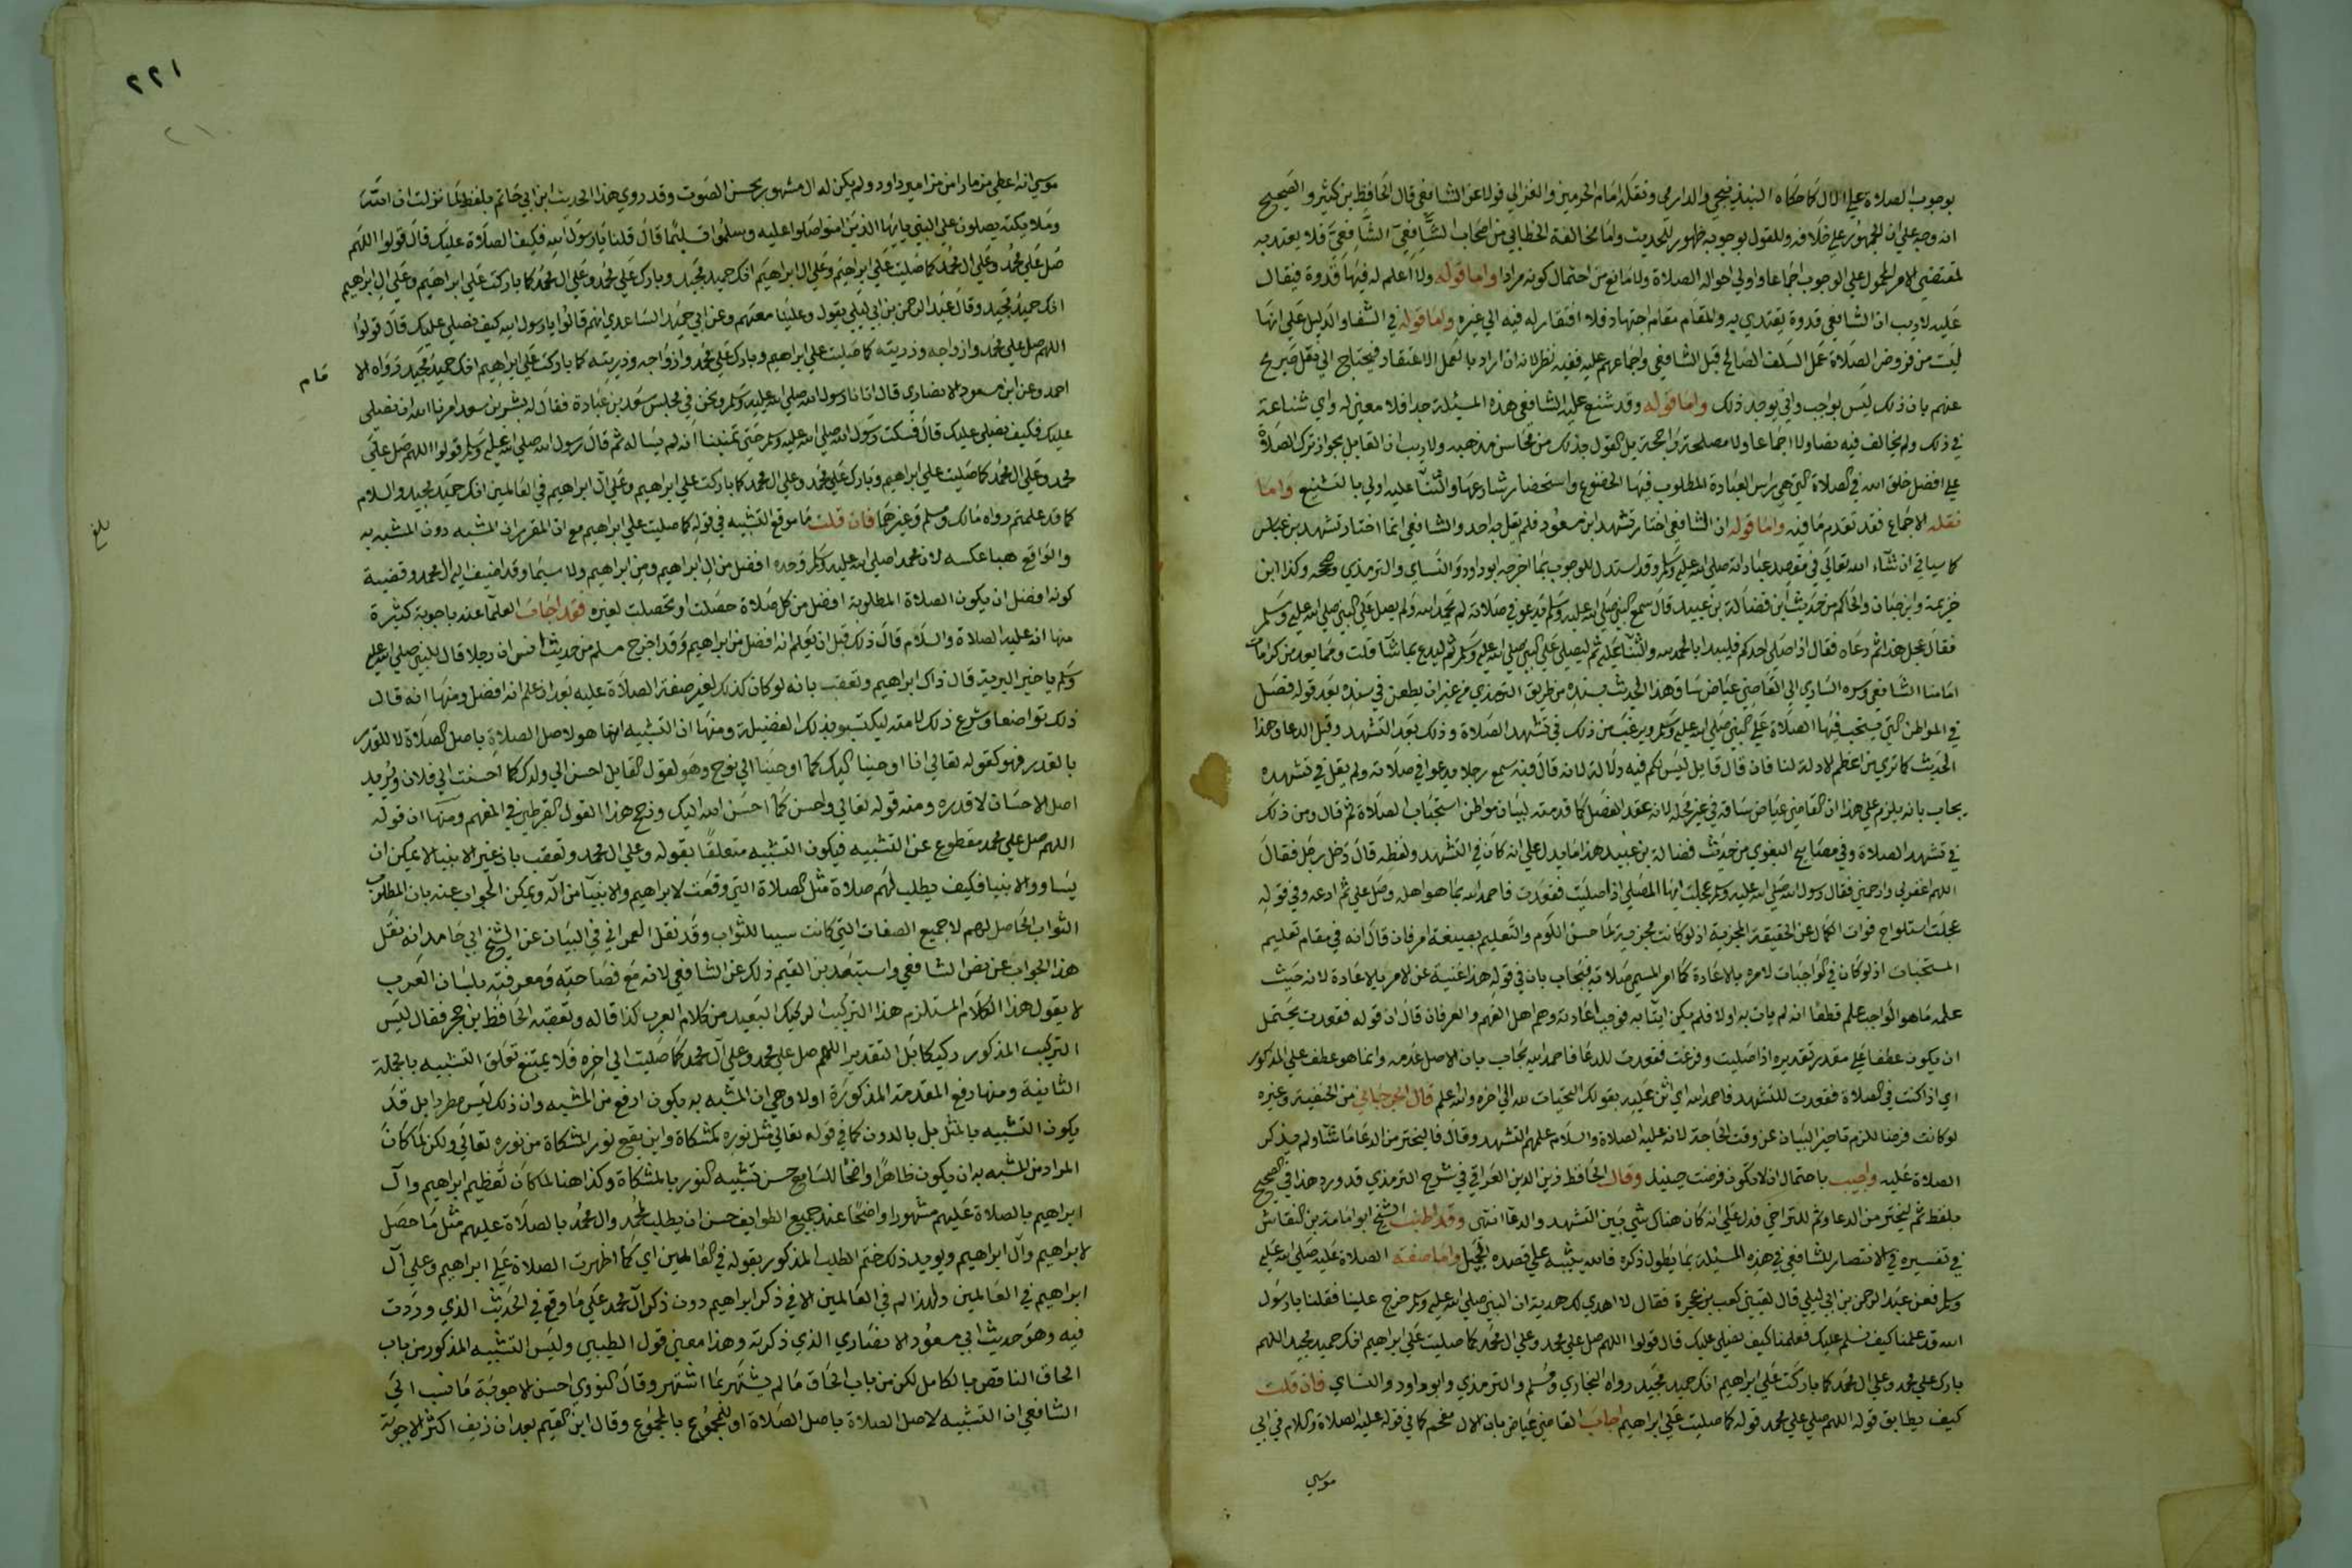 بوجوب الصلاة علي الال كما حكاه البندنيجي والدارمي ونقله امام الحرمين والغزالي قولا عن الشافعي قال الحافظ بن كثير والصحيح
انه وجه علي ان الجمهور علي خلافه وللقول بوجوبه ظهور للحديث واما مخالفة الخطابي من اصحاب الشافعي الشافعي فلا يعتد به
لمقتضي الامر المحمول علي الوجوب اجماعا واولي احواله الصلاة ولا مانع من احتمال كونه مرادا واما قوله ولا اعلم له فيها قدوة فيقال
عليه لاريب ان الشافعي قدوة يقتدي به والمقام مقام اجتهاد فلا افتقار له فيه الي غيره واما قوله في الشفا والدليل علي انها
ليست من فروض الصلاة عمل السلف الصالح قبل الشافعي واجماعهم عليه ففيه نظر لانه ان اراد بالعمل الاعتقاد فيحتاج الي نقل صريح
عنهم بان ذلك ليس بواجب واني يوجد ذلك واما قوله وقد شنع عليه الشافعي هذه المسئلة جدا فلا معني له واي شناعة
في ذلك ولم يخالف فيه نصا ولا اجماعا ولا مصلحة راجحة بل القول بذلك من محاسن مذهبه ولا ريب ان القايل بجواز ترك الصلاة
علي افضل خلق الله في الصلاة التي هي راس العبادة المطلوب فيها الخضوع واستحضار شارعها والثنا عليه اولي بالتشنيع واما
نقله الاجماع فقد تقدم ما فيه واما قوله ان الشافعي اختار تشهد ابن مسعود فلم يقل به احد والشافعي انما اختار تشهد بن عباس
كما سياتي ان شاء الله تعالي في مقصد عباداته صلي الله عليه وسلم وقد استدل للوجوب بما اخرجه ابو داود والنساي والترمذي وصححه وكذا ابن
خزيمة وابن حبان والحاكم من حديث ابن فضالة بن عبيد قال سمع النبي صلي الله عليه وسلم رجلا يدعو في صلاته لم يحمد الله ولم يصل علي النبي صلي الله عليه وسلم
فقال عجل هذا ثم دعاه فقال اذا صلي احدكم فليبدا بالحمد لله والثنا عليه ثم ليصلي علي النبي صلي الله عليه وسلم ثم ليدع بما شا قلت ومما يعد من كرامات
امامنا الشافعي وسره الساري الي القاضي عياض ساق هذا الحديث بسنده من طريق الترمذي من غير ان يطعن في سنده بعد قوله فصل
في المواطن التي يستحب فيها الصلاة علي النبي صلي الله عليه وسلم ويرغب من ذلك في تشهد الصلاة وذلك بعد التشهد وقبل الدعا وهذا
الحديث كما تري من اعظم الادلة لنا فان قال قايل ليس لكم فيه دلالة لانه قال فيه سمع رجلا يدعوا في صلاته ولم يقل في تشهده
يجاب بانه يلزم علي هذا ان القاضي عياض ساقه في غير محله لانه عقد الفصل كما قدمته لبيان مواطن استحباب الصلاة ثم قال ومن ذلك
في تشهد الصلاة وفي مصابيح البغوي من حديث فضالة بن عبيد هذا ما يدل علي انه كان في التشهد ولفظه قال دخل رجل فقال
اللهم اغفر لي وارحمني فقال رسول الله صلي الله عليه وسلم عجلت ايها المصلي اذا صليت فقعدت فاحمد الله بما هو اهله وصل علي ثم ادعه وفي قوله
عجلت استلواح فوات الكمال عن الحقيقة المجزية اذ لو كانت مجزية لما حسن اللوم والتعليم بصيغة امر فان قال انه في مقام تعليم
المستحبات اذ لو كان في الواجبات لامره بالاعادة كما امر المسي صلاته فيجاب بان في قوله هذا غنية عن الامر بالاعادة لانه حيث
علمه ما هو الواجب علم قطعا انه لم يات به اولا فلم يكن ايتا به فوجب اعادته وهم اهل الفهم والعرفان قال ان قوله فقعدت يحتمل
ان يكون عطفا علي مقدر تقديره اذا صليت وفرغت فقعدت للدعا فاحمد الله يجاب بان الاصل عدمه وانما هو عطف علي المذكور
اي اذا كنت في الصلاة فقعدت للتشهد فاحمد الله اي اثن عليه بقولك التحيات لله الي اخره والله اعلم قال الجرجاني من الحنفية وغيره
لو كانت فرضا للزم تاخير البيان عن وقت الحاجة لانه عليه الصلاة والسلام علمهم التشهد وقال فاليختر من الدعا ما شا ولم يذكر
الصلاة عليه واجيب باحتمال ان لا تكون فرضت حينئذ وقال الحافظ زين الدين العراقي في شرح الترمذي قد ورد هذا في الصحيح
بلفظ ثم ليختر من الدعا وثم للتراخي فدل علي انه كان هناك شي بين التشهد والدعا انتهي وقد اطنب الشيخ ابو امامة بن النقاش
في تفسيره في الانتصار للشافعي في هذه المسئلة بما يطول ذكره فالله يثيبه علي قصده الجميل واما صفة الصلاة عليه صلي الله عليه
وسلم فعن عبد الرحمن بن ابي ليلي قال لقيني كعب بن عجرة فقال الا اهدي لك هدية ان النبي صلي الله عليه وسلم خرج علينا فقلنا يا رسول
الله قد علمنا كيف نسلم عليك فعلمنا كيف نصلي عليك قال قولوا اللهم صل علي محمد وعلي ال محمد كما صليت علي ابراهيم انك حميد مجيد اللهم
بارك علي محمد وعلي ال محمد كما باركت علي ابراهيم انك حميد مجيد رواه البخاري ومسلم والترمذي وابو داود والنساي فان قلت
كيف يطابق قوله اللهم صلي علي محمد قوله كما صليت علي ابراهيم اجاب القاضي عياض بان الال مقحم كما في قوله عليه الصلاة والسلام في ابي
موسي
٢٢١
موسي انه اعطي مزمارا من مزامير داود ولم يكن له ال مشهور بحسن الصوت وقد روي هذا الحديث ابن ابي حاتم بلفظ لما نزلت ان الله
وملايكته يصلون علي النبي يا ايها الذين امنوا صلوا عليه وسلموا تسليما قال قلنا يا رسول الله فكيف الصلاة عليك قال قولوا اللهم
صل علي محمد وعلي ال محمد كما صليت علي ابراهيم وعلي ال ابراهيم انك حميد مجيد وبارك علي محمد وعلي ال محمد كما باركت علي ابراهيم وعلي ال ابراهيم
انك حميد مجيد وقال عبد الرحمن بن ابي ليلي يقول وعلينا معهم وعن ابي حميد الساعدي انهم قالوا يا رسول الله كيف نصلي عليك قال قولوا
اللهم صل علي محمد وازواجه وذريته كما صليت علي ابراهيم وبارك علي محمد وازواجه وذريته كما باركت علي ابراهيم انك حميد مجيد رواه الا مام
احمد وعن ابن مسعود الانصاري قال اتانا رسول الله صلي الله عليه وسلم ونحن في مجلس سعد بن عبادة فقال له بشر بن سعد امرنا الله ان نصلي
عليك فكيف نصلي عليك قال فسكت رسول الله صلي الله عليه وسلم حتي تمنينا انه لم يساله ثم قال رسول الله صلي الله عليه وسلم قولوا اللهم صل علي
محمد وعلي ال محمد كما صليت علي ابراهيم وبارك علي محمد وعلي ال محمد كما باركت علي ابراهيم وعلي ال ابراهيم في العالمين انك حميد مجيد والسلام
كما قد علمتم رواه مالك ومسلم وغيرهما فان قلت ما موقع التشبيه في قوله كما صليت علي ابراهيم مع ان المقرر ان المشبه دون المشبه به
بلغ
والواقع هنا عكسه لان محمدا صلي الله عليه وسلم وحده افضل من ال ابراهيم ومن ابراهيم ولا سيما وقد اضيف اليه ال محمد وقضية
كونه افضل ان يكون الصلاة المطلوبة افضل من كل صلاة حصلت او تحصلت لغيره فقد اجاب العلما عنه باجوبة كثيرة
منها انه عليه الصلاة والسلام قال ذلك قبل ان يعلم انه افضل من ابراهيم وقد اخرج مسلم من حديث انس ان رجلا قال للنبي صلي الله عليه
وسلم يا خير البرية قال ذاك ابراهيم وتعقب بانه لو كان كذلك لغير صفة الصلاة عليه بعد ان علم انه افضل ومنها انه قال
ذلك تواضعا وشرع ذلك لامته ليكتسبوا بذلك الفضيلة ومنها ان التشبيه انما هو لاصل الصلاة باصل الصلاة لا للقدر
بالقدر فهو كقوله تعالي انا اوحينا اليك كما اوحينا الي نوح وهو كقول القايل احسن الي ولدك كما احسنت الي فلان ويريد
اصل الاحسان لا قدره ومنه قوله تعالي واحسن كما احسن الله اليك ورجح هذا القول القرطبي في المفهم ومنها ان قوله
اللهم صل علي محمد مقطوع عن التشبيه فيكون التشبيه متعلقا بقوله وعلي ال محمد وتعقب بان غير الانبيا لا يمكن ان
يساووا الانبيا فكيف يطلب لهم صلاة مثل الصلاة التي وقعت لابراهيم والانبيا من اله ويمكن الجواب عنه بان المطلوب
الثواب الحاصل لهم لا جميع الصفات التي كانت سببا للثواب وقد نقل العمراني في البيان عن الشيخ ابي حامد انه نقل
هذا الجواب عن نص الشافعي واستبعد بن القيم ذلك عن الشافعي لانه مع فصاحته ومعرفته بلسان العرب
لا يقول هذا الكلام المستلزم هذا التركيب الركيك البعيد من كلام العرب كذا قاله وتعقبه الحافظ بن حجر فقال ليس
التركيب المذكور ركيكا بل التقدير اللهم صل علي محمد وعلي آل محمد كما صليت الي اخره فلا يمتنع تعلق التشبيه بالجملة
الثانية ومنها رفع المقدمة المذكورة اولا وهي ان المشبه به يكون ارفع من المشبه وان ذلك ليس مطردا بل قد
يكون التشبيه بالمثل بل بالدون كما في قوله تعالي مثل نوره كمشكاة واين يقع نور المشكاة من نوره تعالي ولكن لما كان
المراد من المشبه به ان يكون ظاهرا واضحا للسامع حسن تشبيه النور بالمشكاة وكذا هنا لما كان تعظيم ابراهيم وآل
ابراهيم بالصلاة عليهم مشهورا واضحا عند جميع الطوايف حسن ان يطلب لمحمد وال محمد بالصلاة عليهم مثل ما حصل
لابراهيم وآل ابراهيم ويويد ذلك ختم الطلب المذكور بقوله في العالمين اي كما اظهرت الصلاة علي ابراهيم وعلي آل
ابراهيم في العالمين ولهذا لم في العالمين الا في ذكر ابراهيم دون ذكر آل محمد علي ما وقع في الحديث الذي وردت
فيه وهو حديث ابي مسعود الانصاري الذي ذكرته وهذا معني قول الطيبي وليس التشبيه المذكور من باب
الحاق الناقص بالكامل لكن من باب الحاق ما لم يشتهر بما اشتهر وقال النووي احسن الاجوبة ما نسب الي
الشافعي ان التشبيه لاصل الصلاة باصل الصلاة او للمجموع بالمجموع وقال ابن القيم بعد ان زيف اكثر الاجوبة